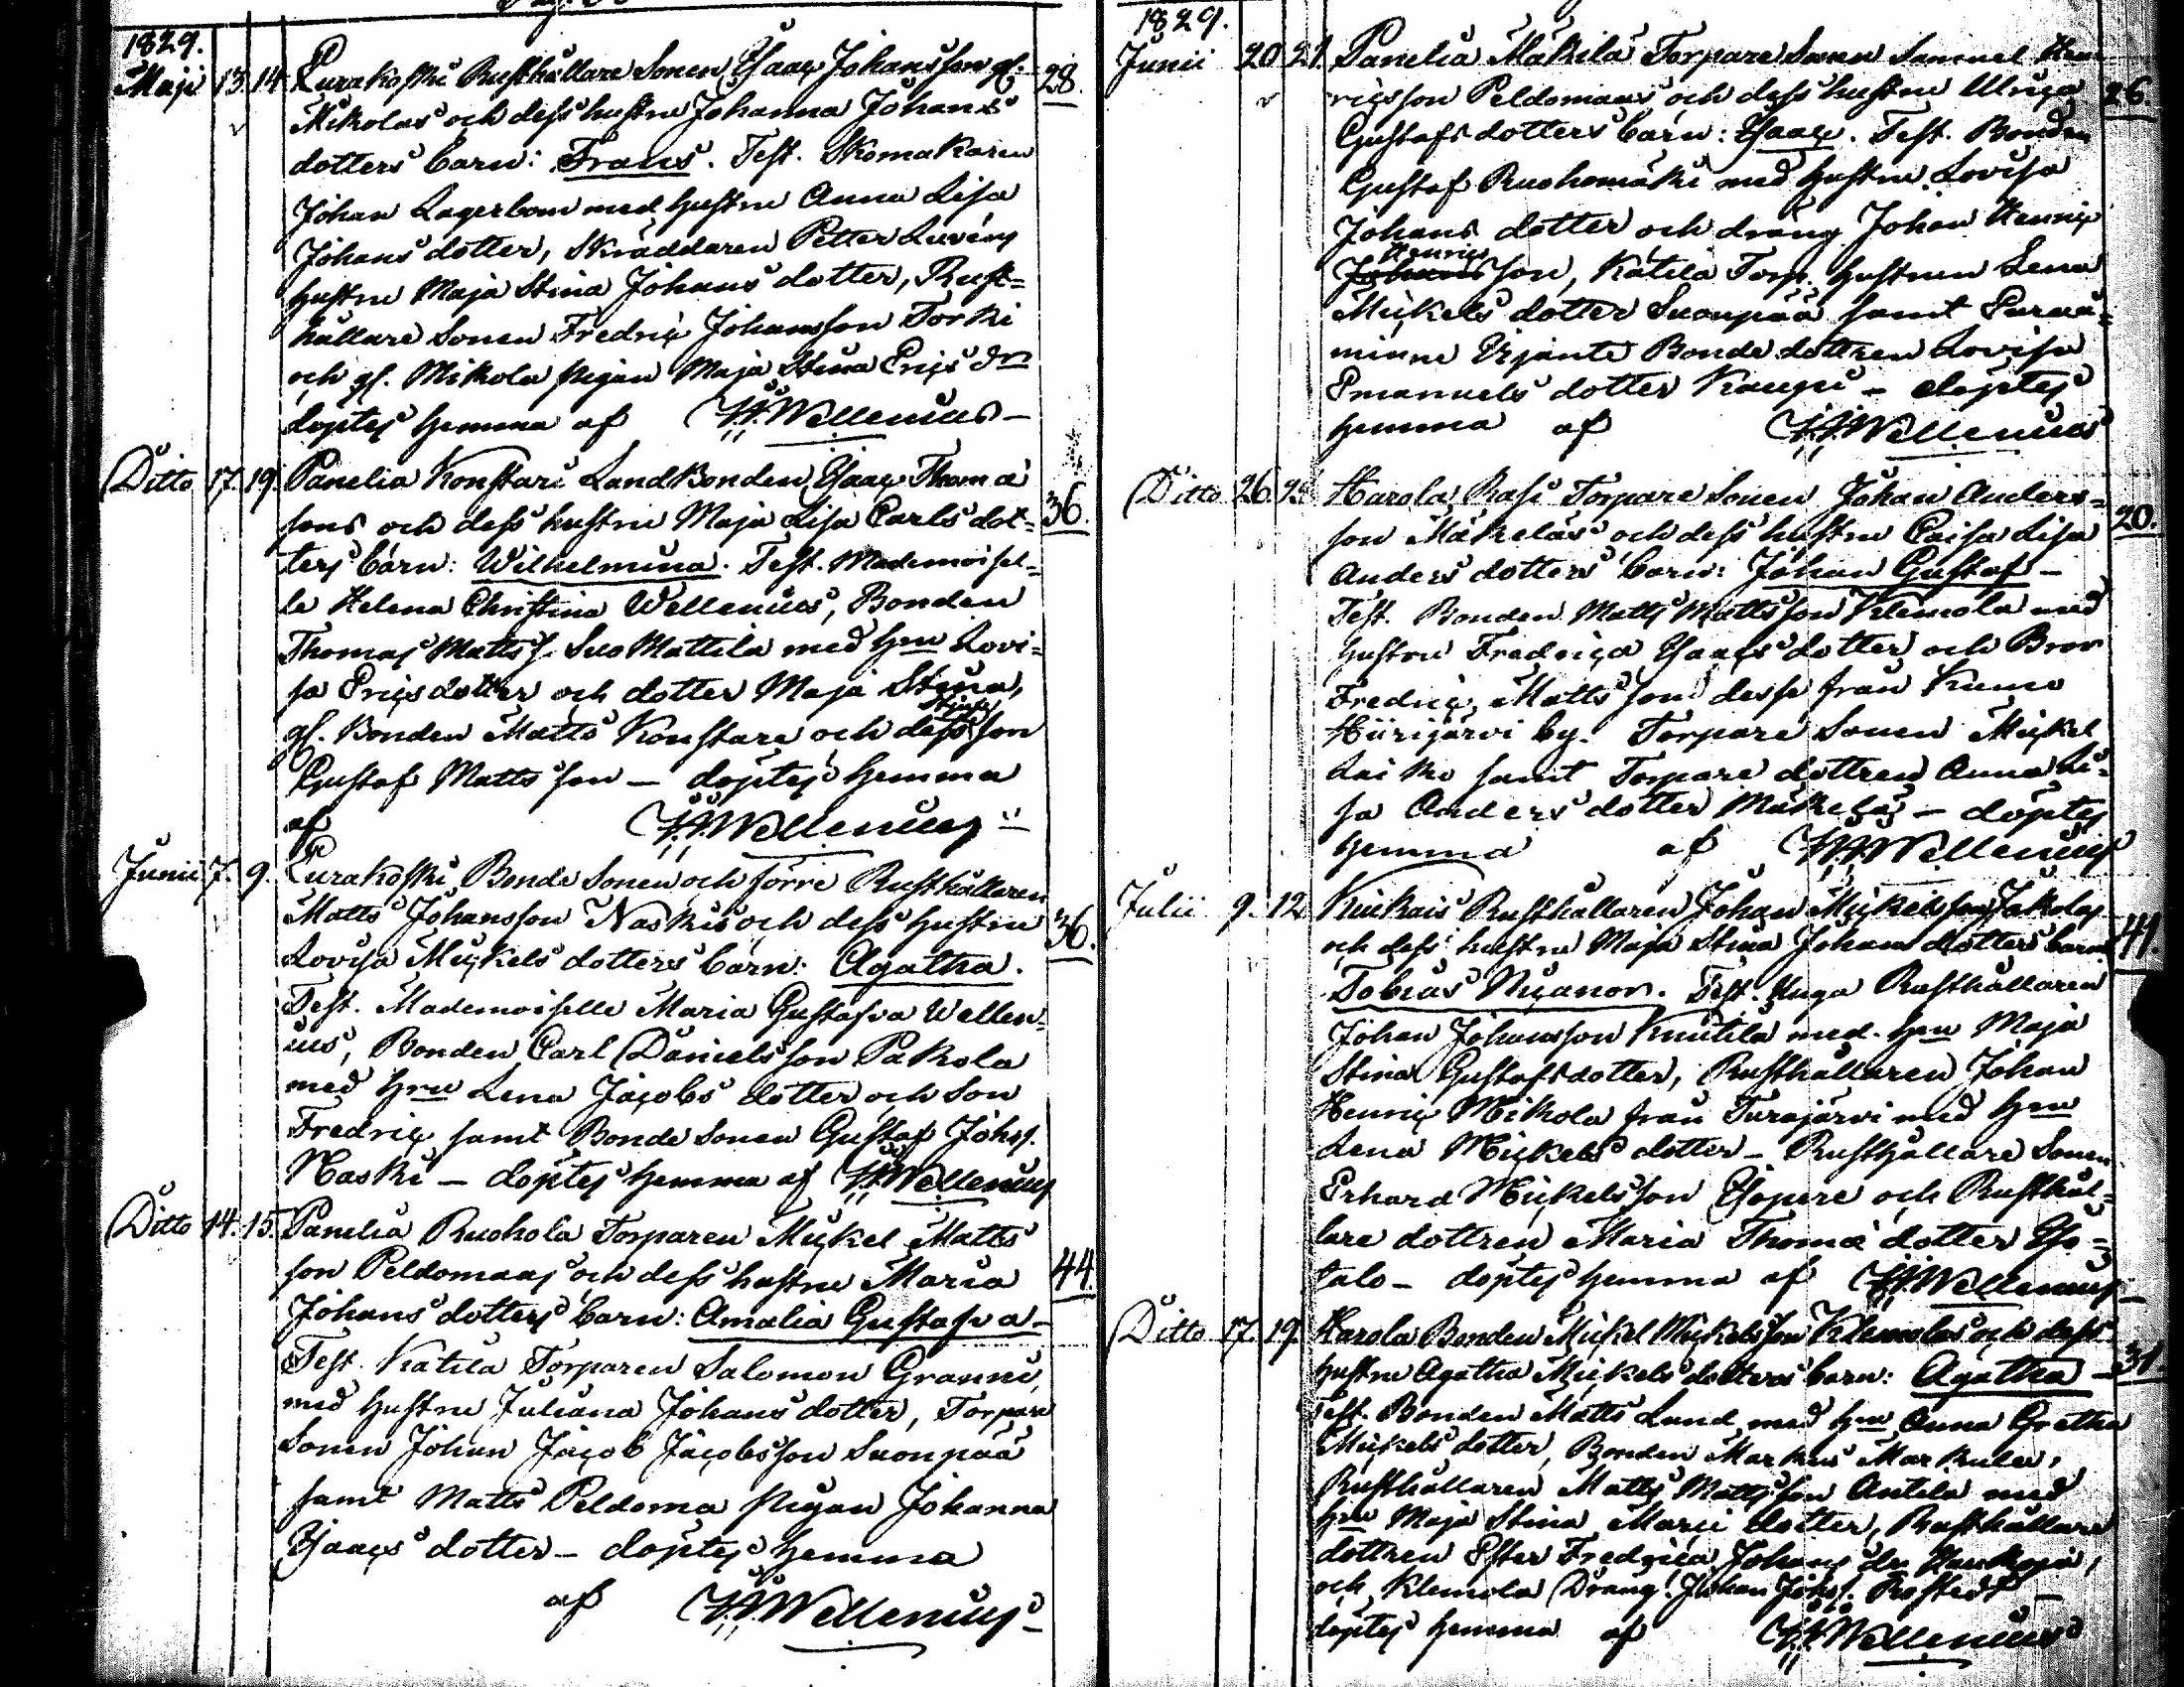 1829.
Maji 13. 14. Eurakoski Rusthållare Sonen Isaac Johansson gl. 28.
Mikolas och dess hustru Johanna Johans
dotters barn: Frans. Test. Skomakaren
Johan Lagerbom med hustru Anna Lisa
Johans dotter, Skräddaren Petter Luvéns
hustru Maja Stina Johans dotter, Rust=
hållare Sonen Fredric Johansson Torki
och gl. Mikola pigan Maja Stina Erics dr
döptes hemma af Wellenius –
Ditto 17. 19. Panelia Konstari Landbonden Isaac Thomæ
sons och dess hustru Maja Lisa Carls dot= 36.
ters barn: Wilhelmina. Test. Mademoisel=
le Helena Christina Wellenius, Bonden
Thomas Matts s. Suo Mattila med hru Lovi=
sa Ericsdotter och dotter Maja Stina,
gl. Bonden Matts Konstare och dess son
Gustaf Matts son – döptes hemma
af Wellenius
Junii 7. 9. Eurakoski Bonde Sonen och förre Rusthållaren
Matts Johansson Naskis och dess hustru 36.
Lovisa Mickels dotters barn: Agatha.
Test. Mademoiselle Maria Gustafva Wellen=
ius, Bonden Carl Danielsson Pakola
med hru Lena Jacobs dotter och son
Fredric samt Bonde Sonen Gustaf Johss.
Naski – döptes hemma af Wellenius
Ditto 14. 15. Panelia Ruohola Torparen Mickel Matts
son Peldomaas och dess hustru Maria 44.
Johans dotters barn: Amalia Gustafva –
Test. Katila Torparen Salomon Granni
med hustru Juliana Johans dotter, Torpare
Sonen Johan Jacob Jacobsson Suonpää
samt Matts Peldoma pigan Johanna
Isaacs dotter – döptes hemma
af Wellenius –
1829.
Junii 20 21. Panelia Mäkilä Torpare Sonen Samuel Hen=
ricsson Peldomaas och dess hustru Ulrica 26.
Gustafs dotters barn: Isaac. Test. Bonden
Gustaf Ruohomäki med hustru Lovisa
Johans dotter och dräng Johan Henric
Henrics
Johans son, Katila Torp. hustrun Lena
Mickels dotter Suonpää samt Euraå=
minne Irjante Bonde dottren Lovisa
Emanuels dotter Kaupi – döptes
hemma af Wellenius
Ditto 26. Harola, Rasi Torpare Sonen Johan Anders=
son Mäkeläs och dess hustru Caisa Lisa 20.
Anders dotters barn: Johan Gustaf –
Test. Bonden Matts Matts son Klemola med
hustru Fredrica Isaacs dotter och Bror
Fredric Matts son desse från Kumo
Hiirijärvi by. Torpare Sonen Mickel
Laiko samt Torpare dottren Anna Li=
sa Anders dotter Mäkelä – döptes
hemma af Wellenius
Julii 9. 12 Kiukais Rusthållaren Johan Mickelsson Jakolas
och dess hustru Maja Stina Johans dotters barn 41.
Tobias Nicanor. Test. Unga Rusthållaren
Johan Johansson Knutila med hru Maja
Stina Gustafsdotter, Rusthållaren Johan
Henric Mikola från Turajärvi med hru
Lena Mickels dotter – Rusthållare Sonen
Erhard Mickels son Isopere och Rusthål=
lare dottren Maria Thomæ dotter Iso=
talo – döptes hemma af Wellenius –
Ditto 17. 19. Harola Bonden Mickel Mickelsson Klemolas och dess
hustru Agatha Mickels dotters barn: Agatha – 31
Test. Bonden Matts Lund med hru Anna Gretha
Mickels dotter, Bonden Markus Markula,
Rusthållaren Matts Matts son Antila med
hru Maja Stina Marci dotter, Rusthållare
dottren Ester Fredrica Johans dr
och Klemola Dräng Johan Johss. Rostedt –
döptes hemma af Wellenius